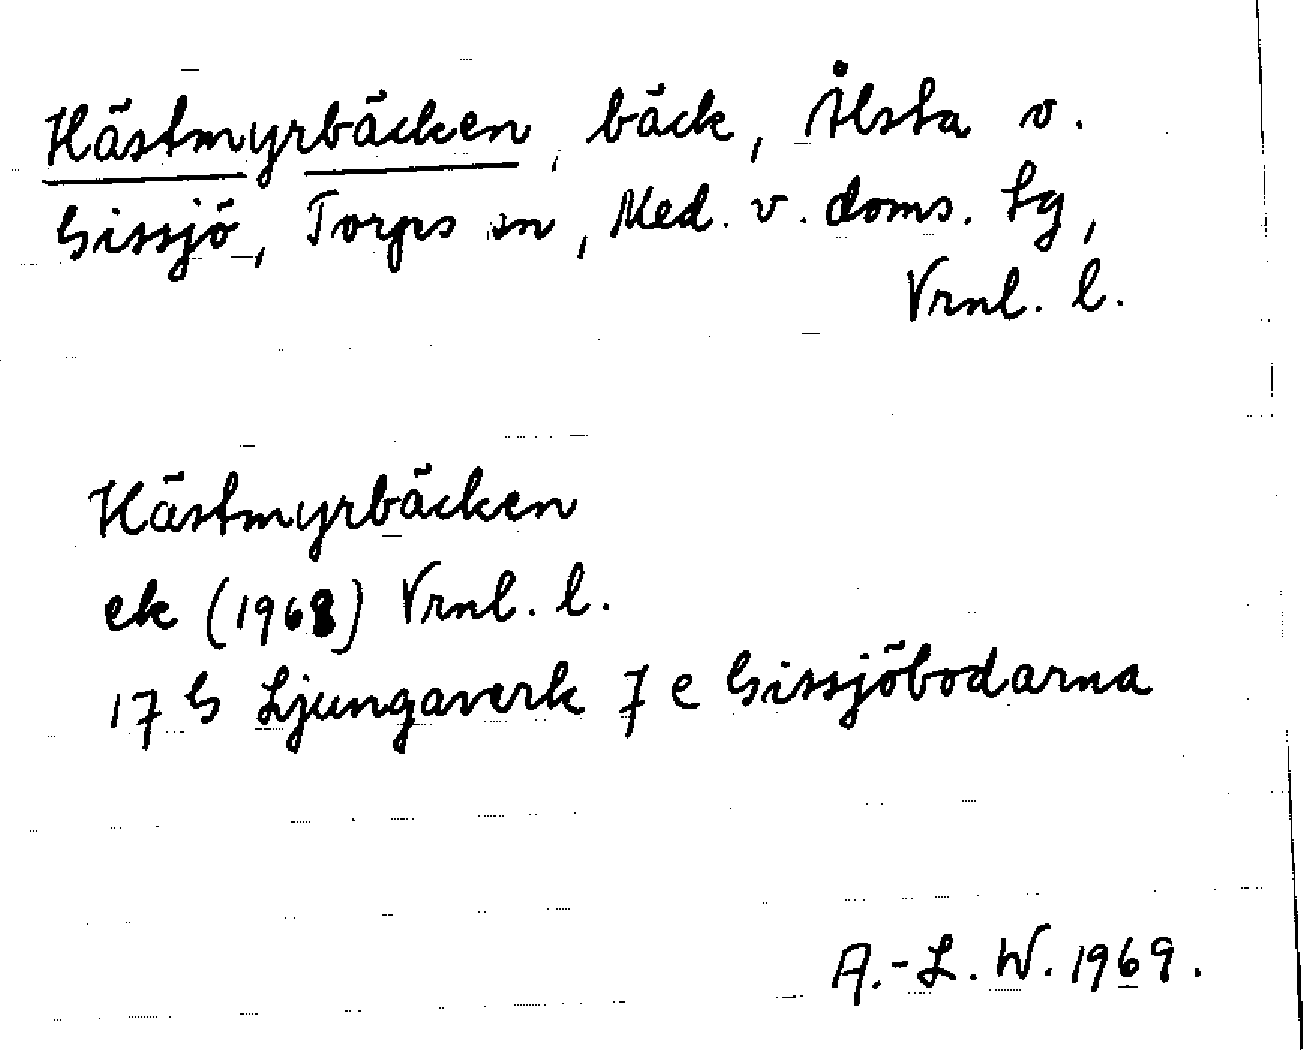 Hästmyrbäcken, bäck, Ålsta o.
Gissjö, Torps sn, Med. v. doms. tg,
Vrnl. l.
Hästmyrbäcken
ek (1968) Vrnl. l.
17 G Ljungaverk 7 e Gissjöbodarna
A.-L. W. 1969.